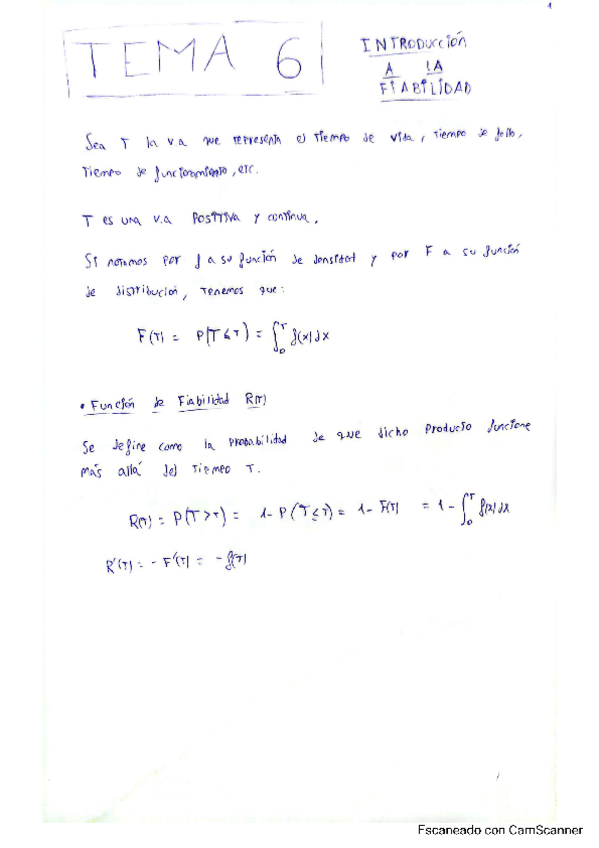 1
TEMA 6
INTRODUCCIÓN
A LA
FIABILIDAD
Sea T la va que representa el tiempo de vida, tiempo de fallo,
tiempo de funcionamiento, etc.
T es una v.a positiva y continua.
Si notamos por f a su función de densidad y por F a su función
de distribución, tenemos que:
F(T) = P(T ≤ T) = ∫₀ᵀ f(x)dx
• Función de Fiabilidad R(T)
Se define como la probabilidad de que dicho producto funcione
más allá del tiempo T.
R(T) = P(T > T) = 1 - P(T ≤ T) = 1 - F(T) = 1 - ∫₀ᵀ f(x)dx
R'(T) = - F'(T) = - f(T)
Escaneado con CamScanner